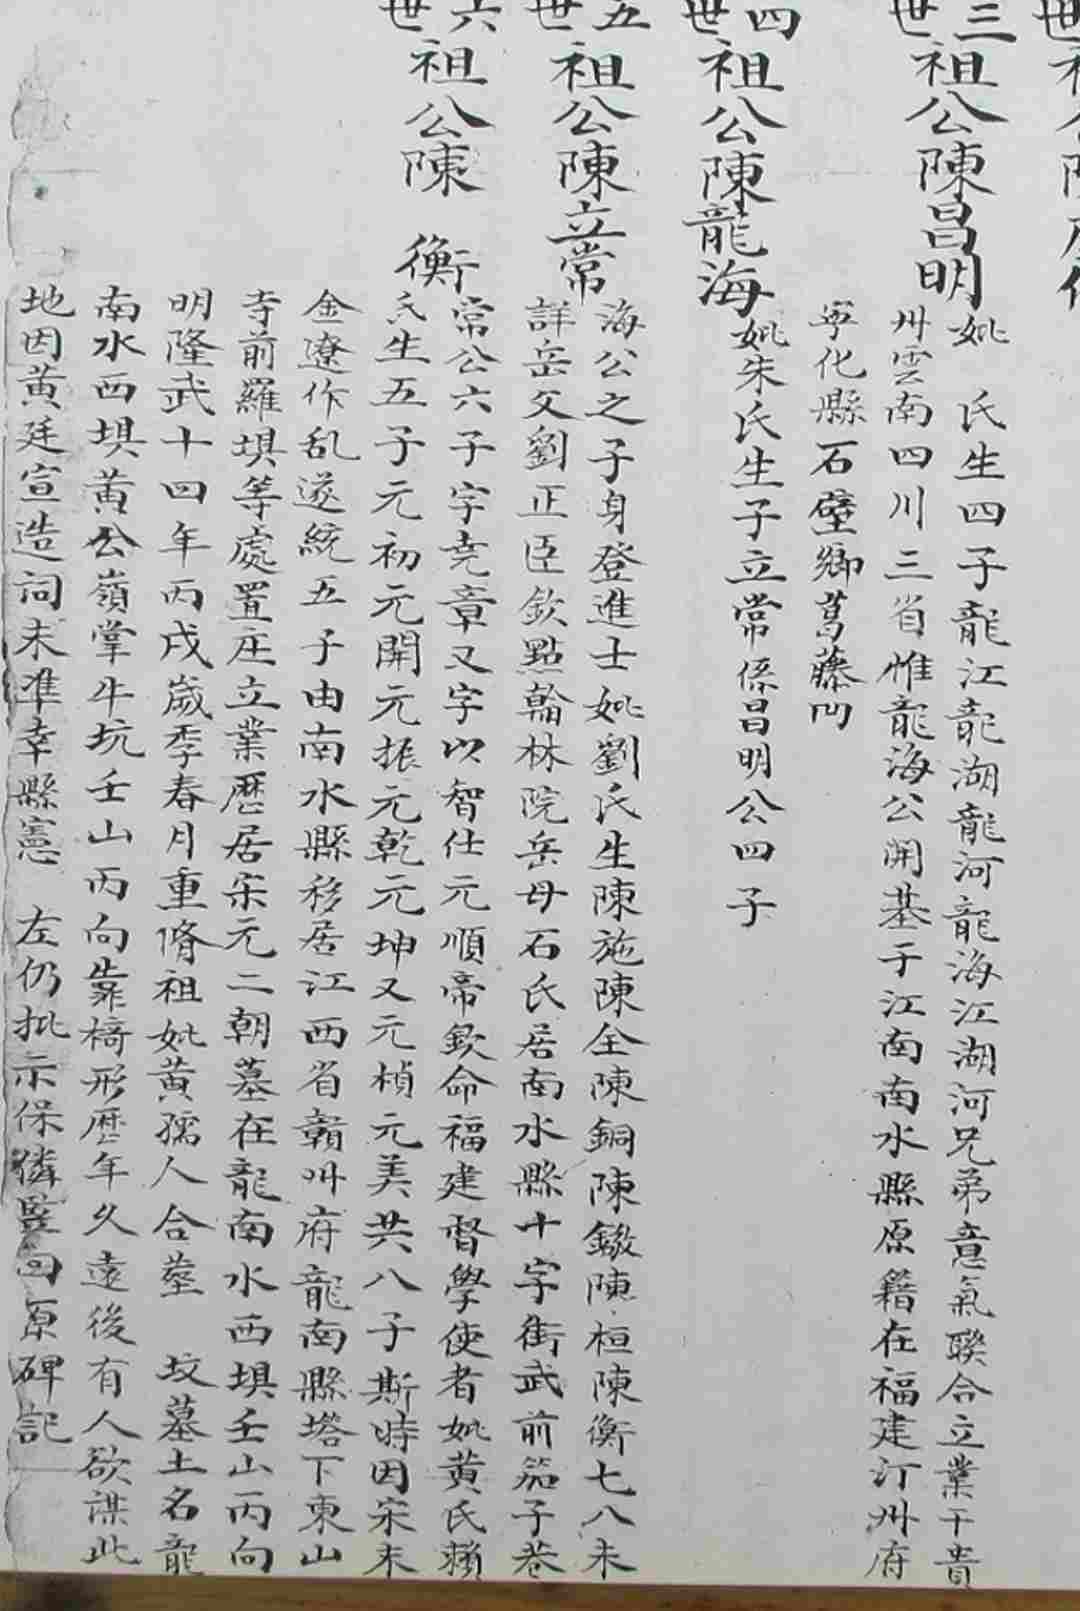 世祖公陳
三世祖公陳昌明
妣 氏生四子龍江龍湖龍河龍海江湖河兄弟意氣聯合立業于貴
州雲南四川三省惟龍海公開基于江南南水縣原籍在福建汀州府
寧化縣石壁鄉葛藤凹
四世祖公陳龍海
妣朱氏生子立常係昌明公四子
五世祖公陳立常
海公之子身登進士妣劉氏生陳施陳全陳銅陳鏾陳桓陳衡七八未
詳岳父劉正臣欽點翰林院岳母石氏居南水縣十字街武前茄子巷
六世祖公陳 衡
常公六子字堯章又字以智仕元順帝欽命福建督學使者妣黃氏賴
氏生五子元初元開元振元乾元坤又元楨元美共八子斯時因宋末
金遼作乱遂統五子由南水縣移居江西省贛州府龍南縣塔下東山
寺前羅埧等處置庄立業歷居宋元二朝墓在龍南水西埧壬山丙向
明隆武十四年丙戌歲季春月重脩祖妣黃孺人合塟 坟墓土名龍
南水西埧黃公嶺掌牛坑壬山丙向靠椅形歷年久遠後有人欲謀此
地因黃廷宣造詞未準幸縣憲 左仍批示保隣竪回原碑記